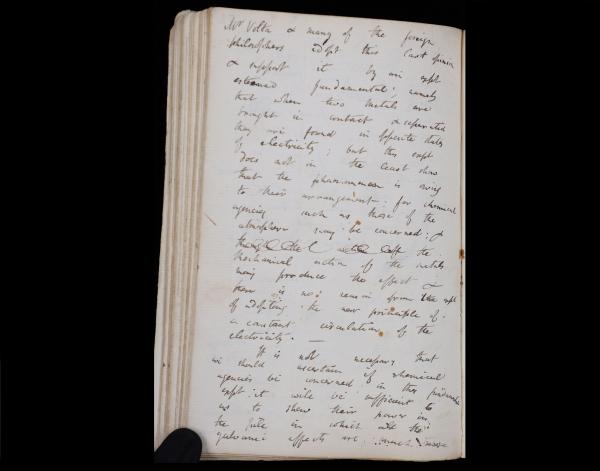 Mr Volta & many of the foreign
philosophers adopt this last opinion
& support it by an expt
esteemed fundamental; namely
that when two metals are
brought in contact & separated
they are found in opposite states
of electricity; but this expt
does not in the least show
that the phænomenon is owing
to their arrangement: for chemical
agencies such as those of the
atmosphere may be concerned: &
the
mechanical action of the metals
may produce the effect &
there is no reason from the expt
of adopting the new principle of
a constant circulation of the
electricity. —
It is not necessary that
we should ascertain if chemical
agencies be concerned in this fundamental
expt: it will be sufficient to
us to shew their power in
the pile in which all the
galvanic effects are much more